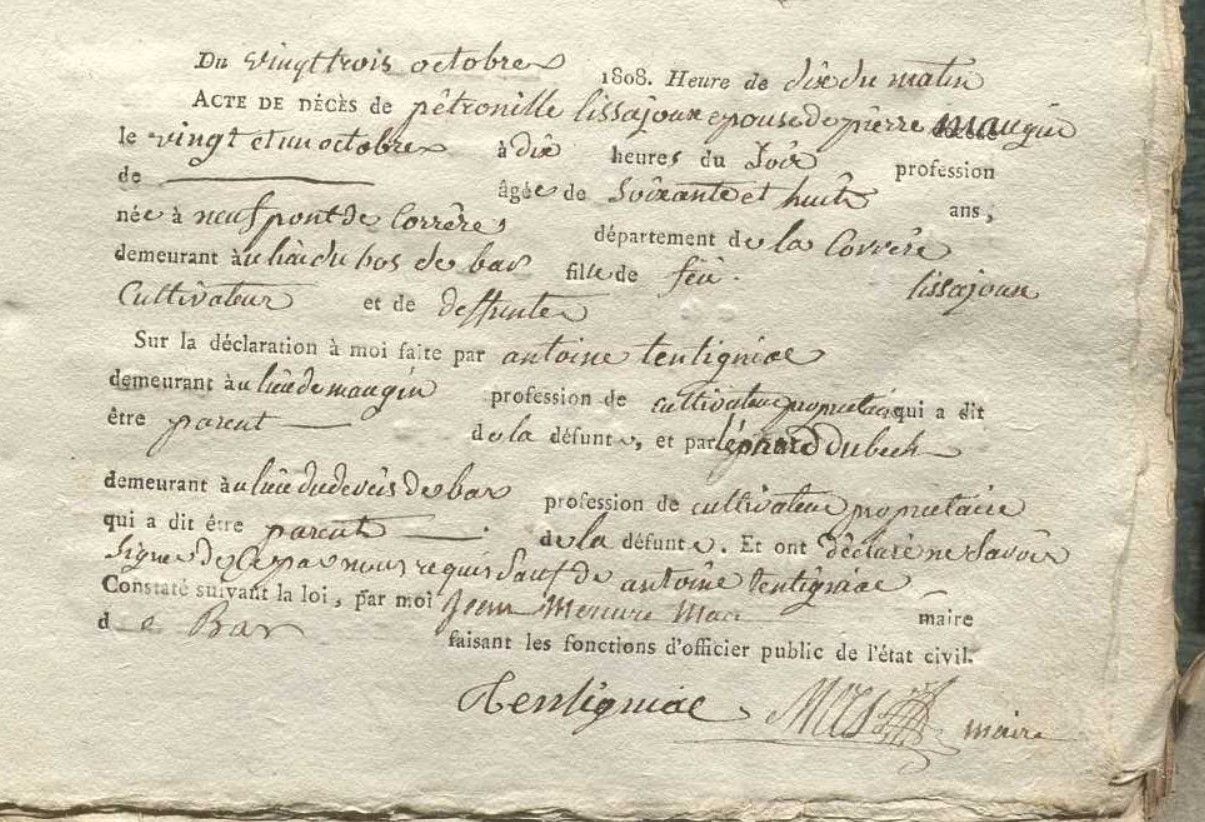 Du vingt trois octobre 1808. Heure de dix du matin
ACTE DE DÉCÈS de pétronille lissajoux epouse de pierre maugin
le vingt et un octobre à dix heures du Soir profession
de âgée de Soixante et huit ans,
née à neuf pont de Corrère département de la Corrère
demeurant àu liàu du bos de bar fille de feu lissajoux
Cultivateur et de deffunte
Sur la déclaration à moi faite par antoine tentigniac
demeurant àu lieu de maugin profession de cultivateur propriétaire qui a dit
être parent de la défunte, et par léonard dubech
demeurant àu lieu du de bar profession de cultivateur propriétaire
qui a dit être parent de la défunte. Et ont déclaré ne Savoir
Signer de Ce par nous requis Sauf de antoine tentigniac
Constaté suivant la loi, par moi Jean Mercure Mas maire
de Bar faisant les fonctions d'officier public de l'état civil.
Tentigniac Mas maire